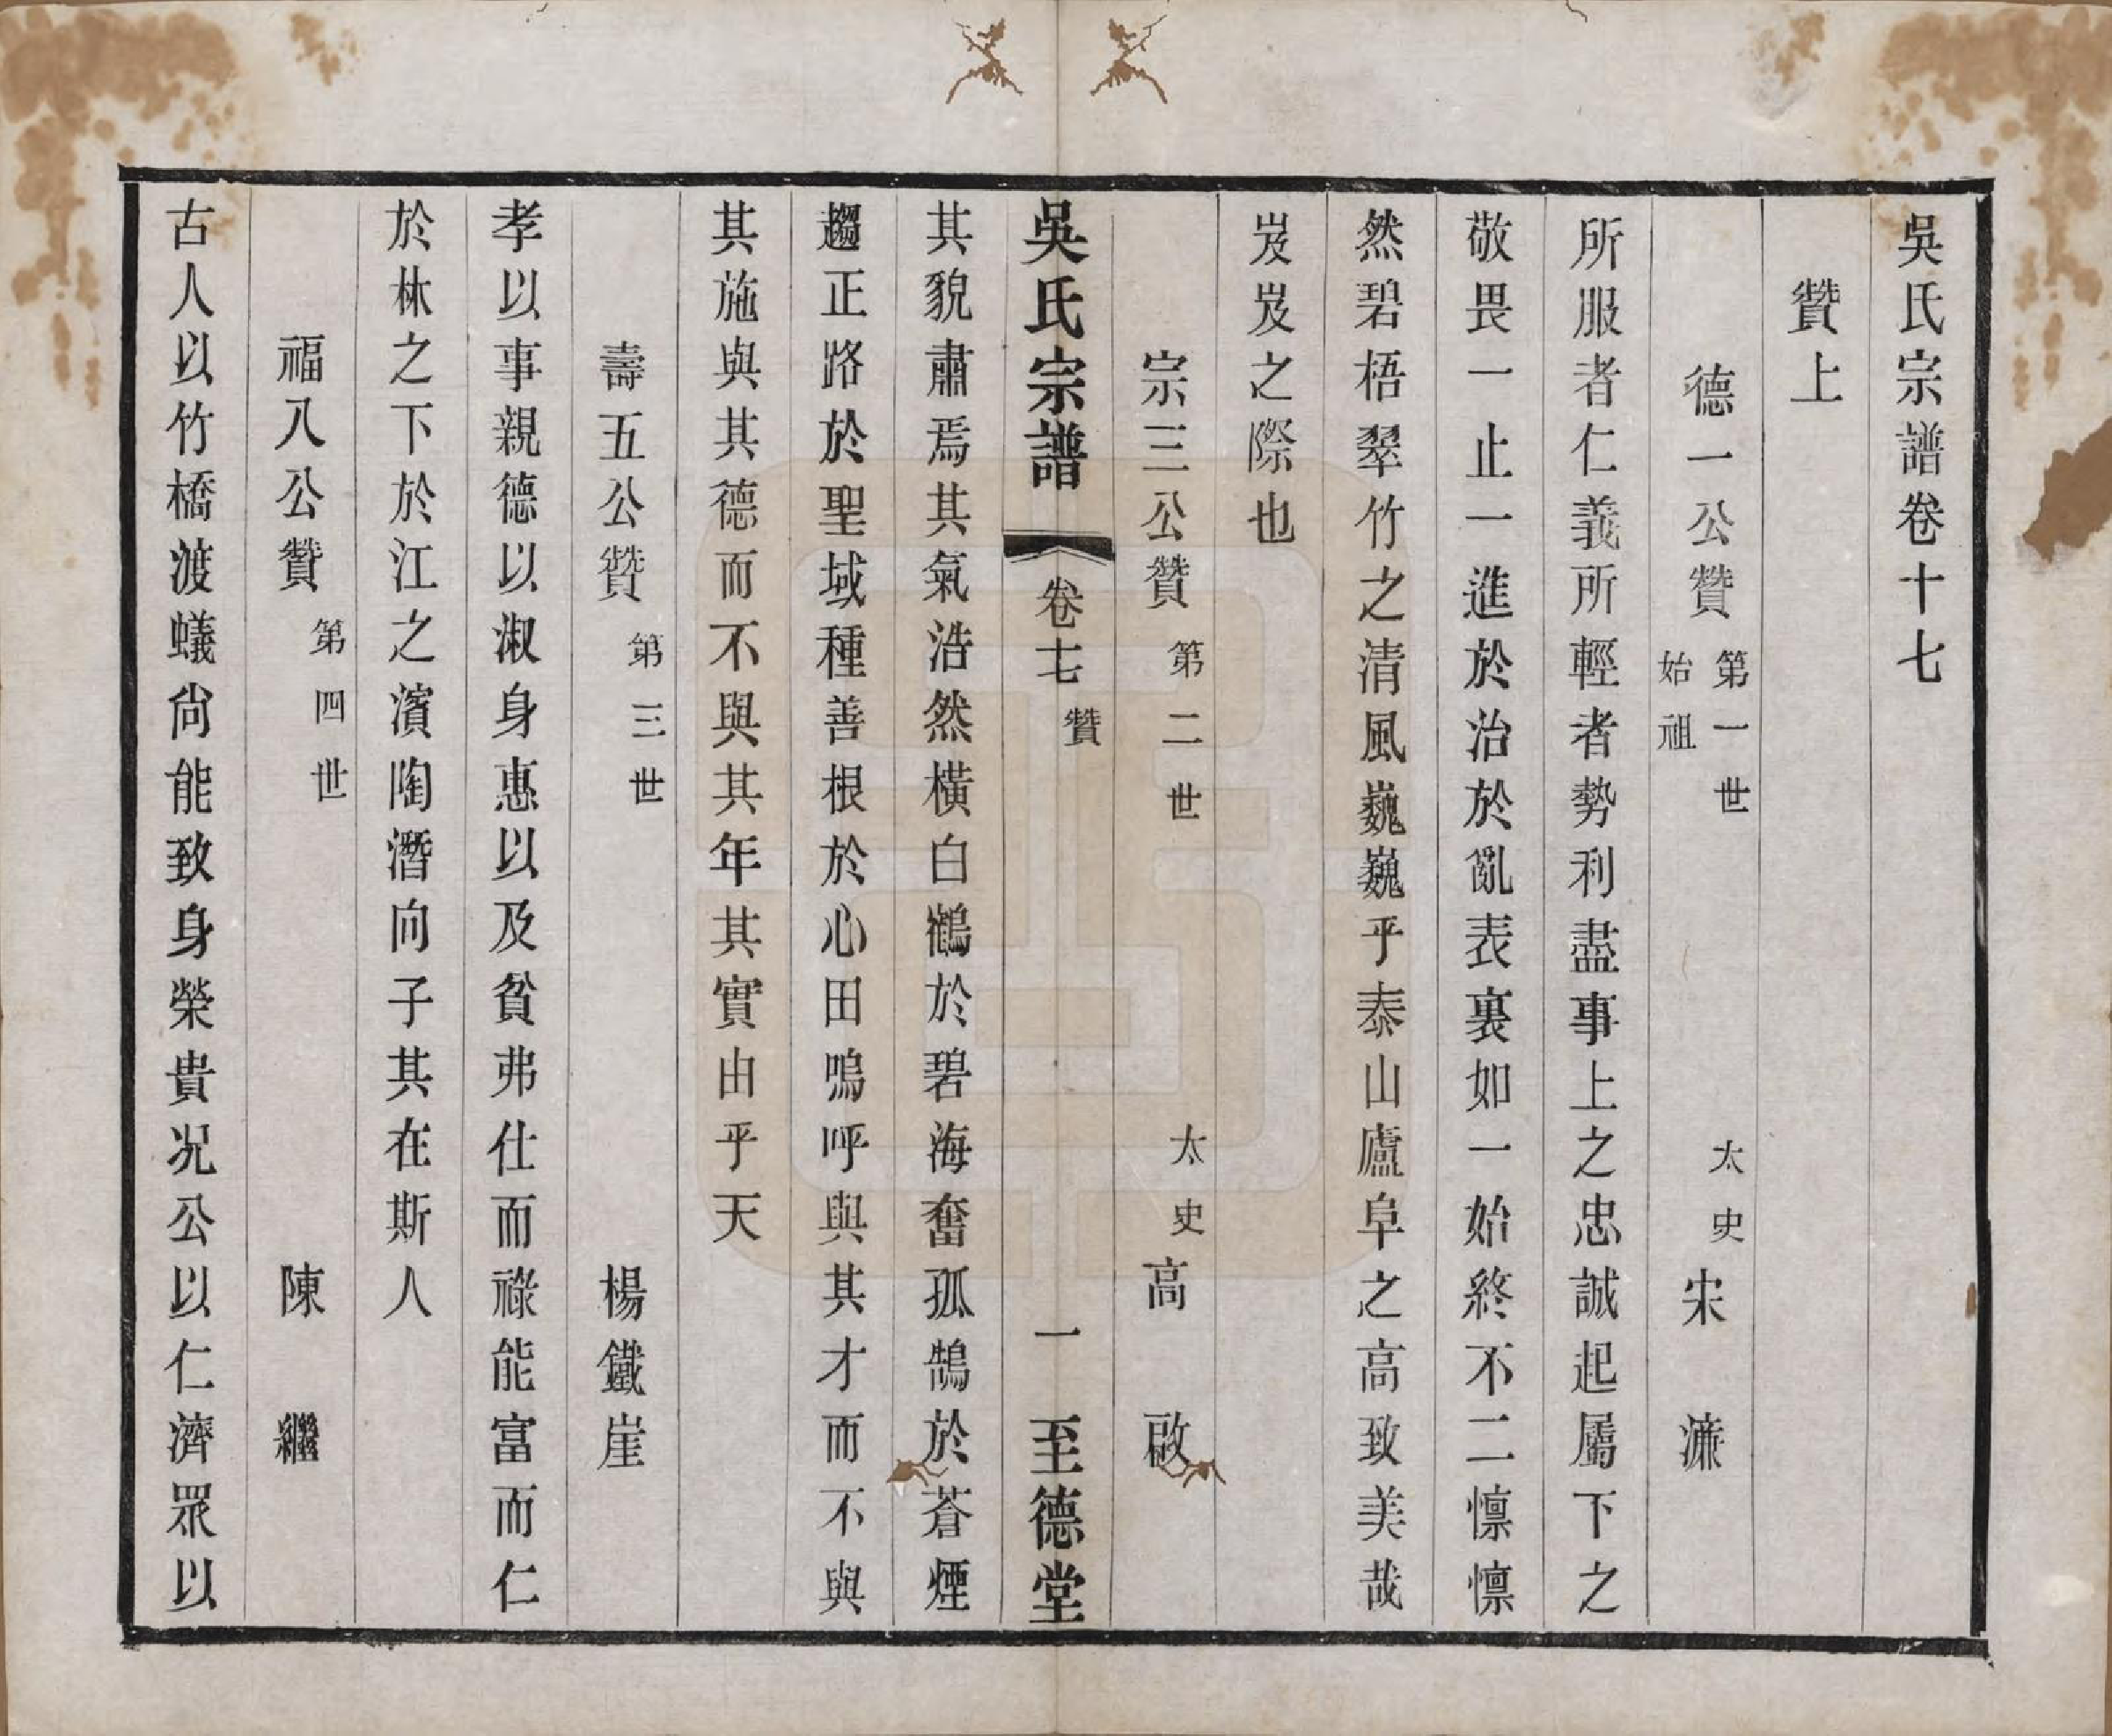 吳氏宗譜卷十七
贊上
德一公贊 第一世 始祖 太史 宋濂
所服者仁義所輕者勢利盡事上之忠誠起屬下之
敬畏一止一進於治於亂表裏如一始終不二懍懍
然碧梧翠竹之清風巍巍乎泰山廬阜之高致美哉
岌岌之際也
宗三公贊 第二世 太史 高啟
吳氏宗譜 卷十七 贊 一 至德堂
其貌肅焉其氣浩然橫白鶴於碧海奮孤鵠於蒼煙
趨正路於聖域種善根於心田嗚呼與其才而不與
其施與其德而不與其年其實由乎天
壽五公贊 第三世 楊鐵崖
孝以事親德以淑身惠以及貧弗仕而祿能富而仁
於林之下於江之濱陶潛向子其在斯人
福八公贊 第四世 陳繼
古人以竹橋渡蟻尚能致身榮貴况公以仁濟眾以